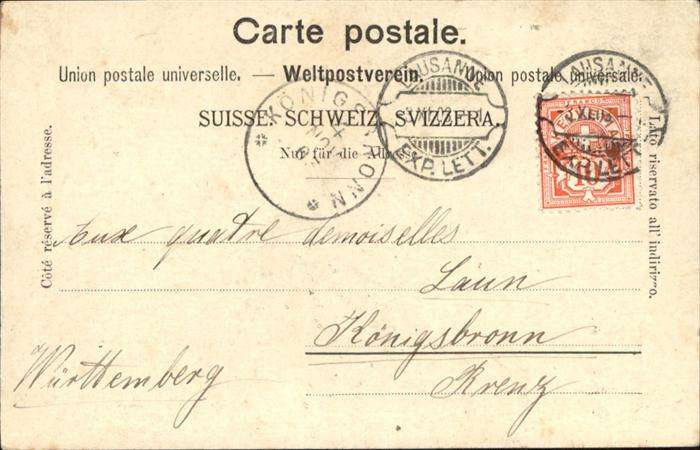 Carte postale.
Union postale universelle. — Weltpostverein. Union postale universale.
SUISSE. SCHWEIZ. SVIZZERA.
Nur für die Adresse
Côté réservé à l'adresse.
Lato riservato all' indirizzo.
KÖNIGSBRONN
LAUSANNE
EXP. LETT.
LAUSANNE
EXP. LETT.
FRANCO
10
Aux quatre demoiselles
Laun
Königsbronn
Württemberg
Krenz